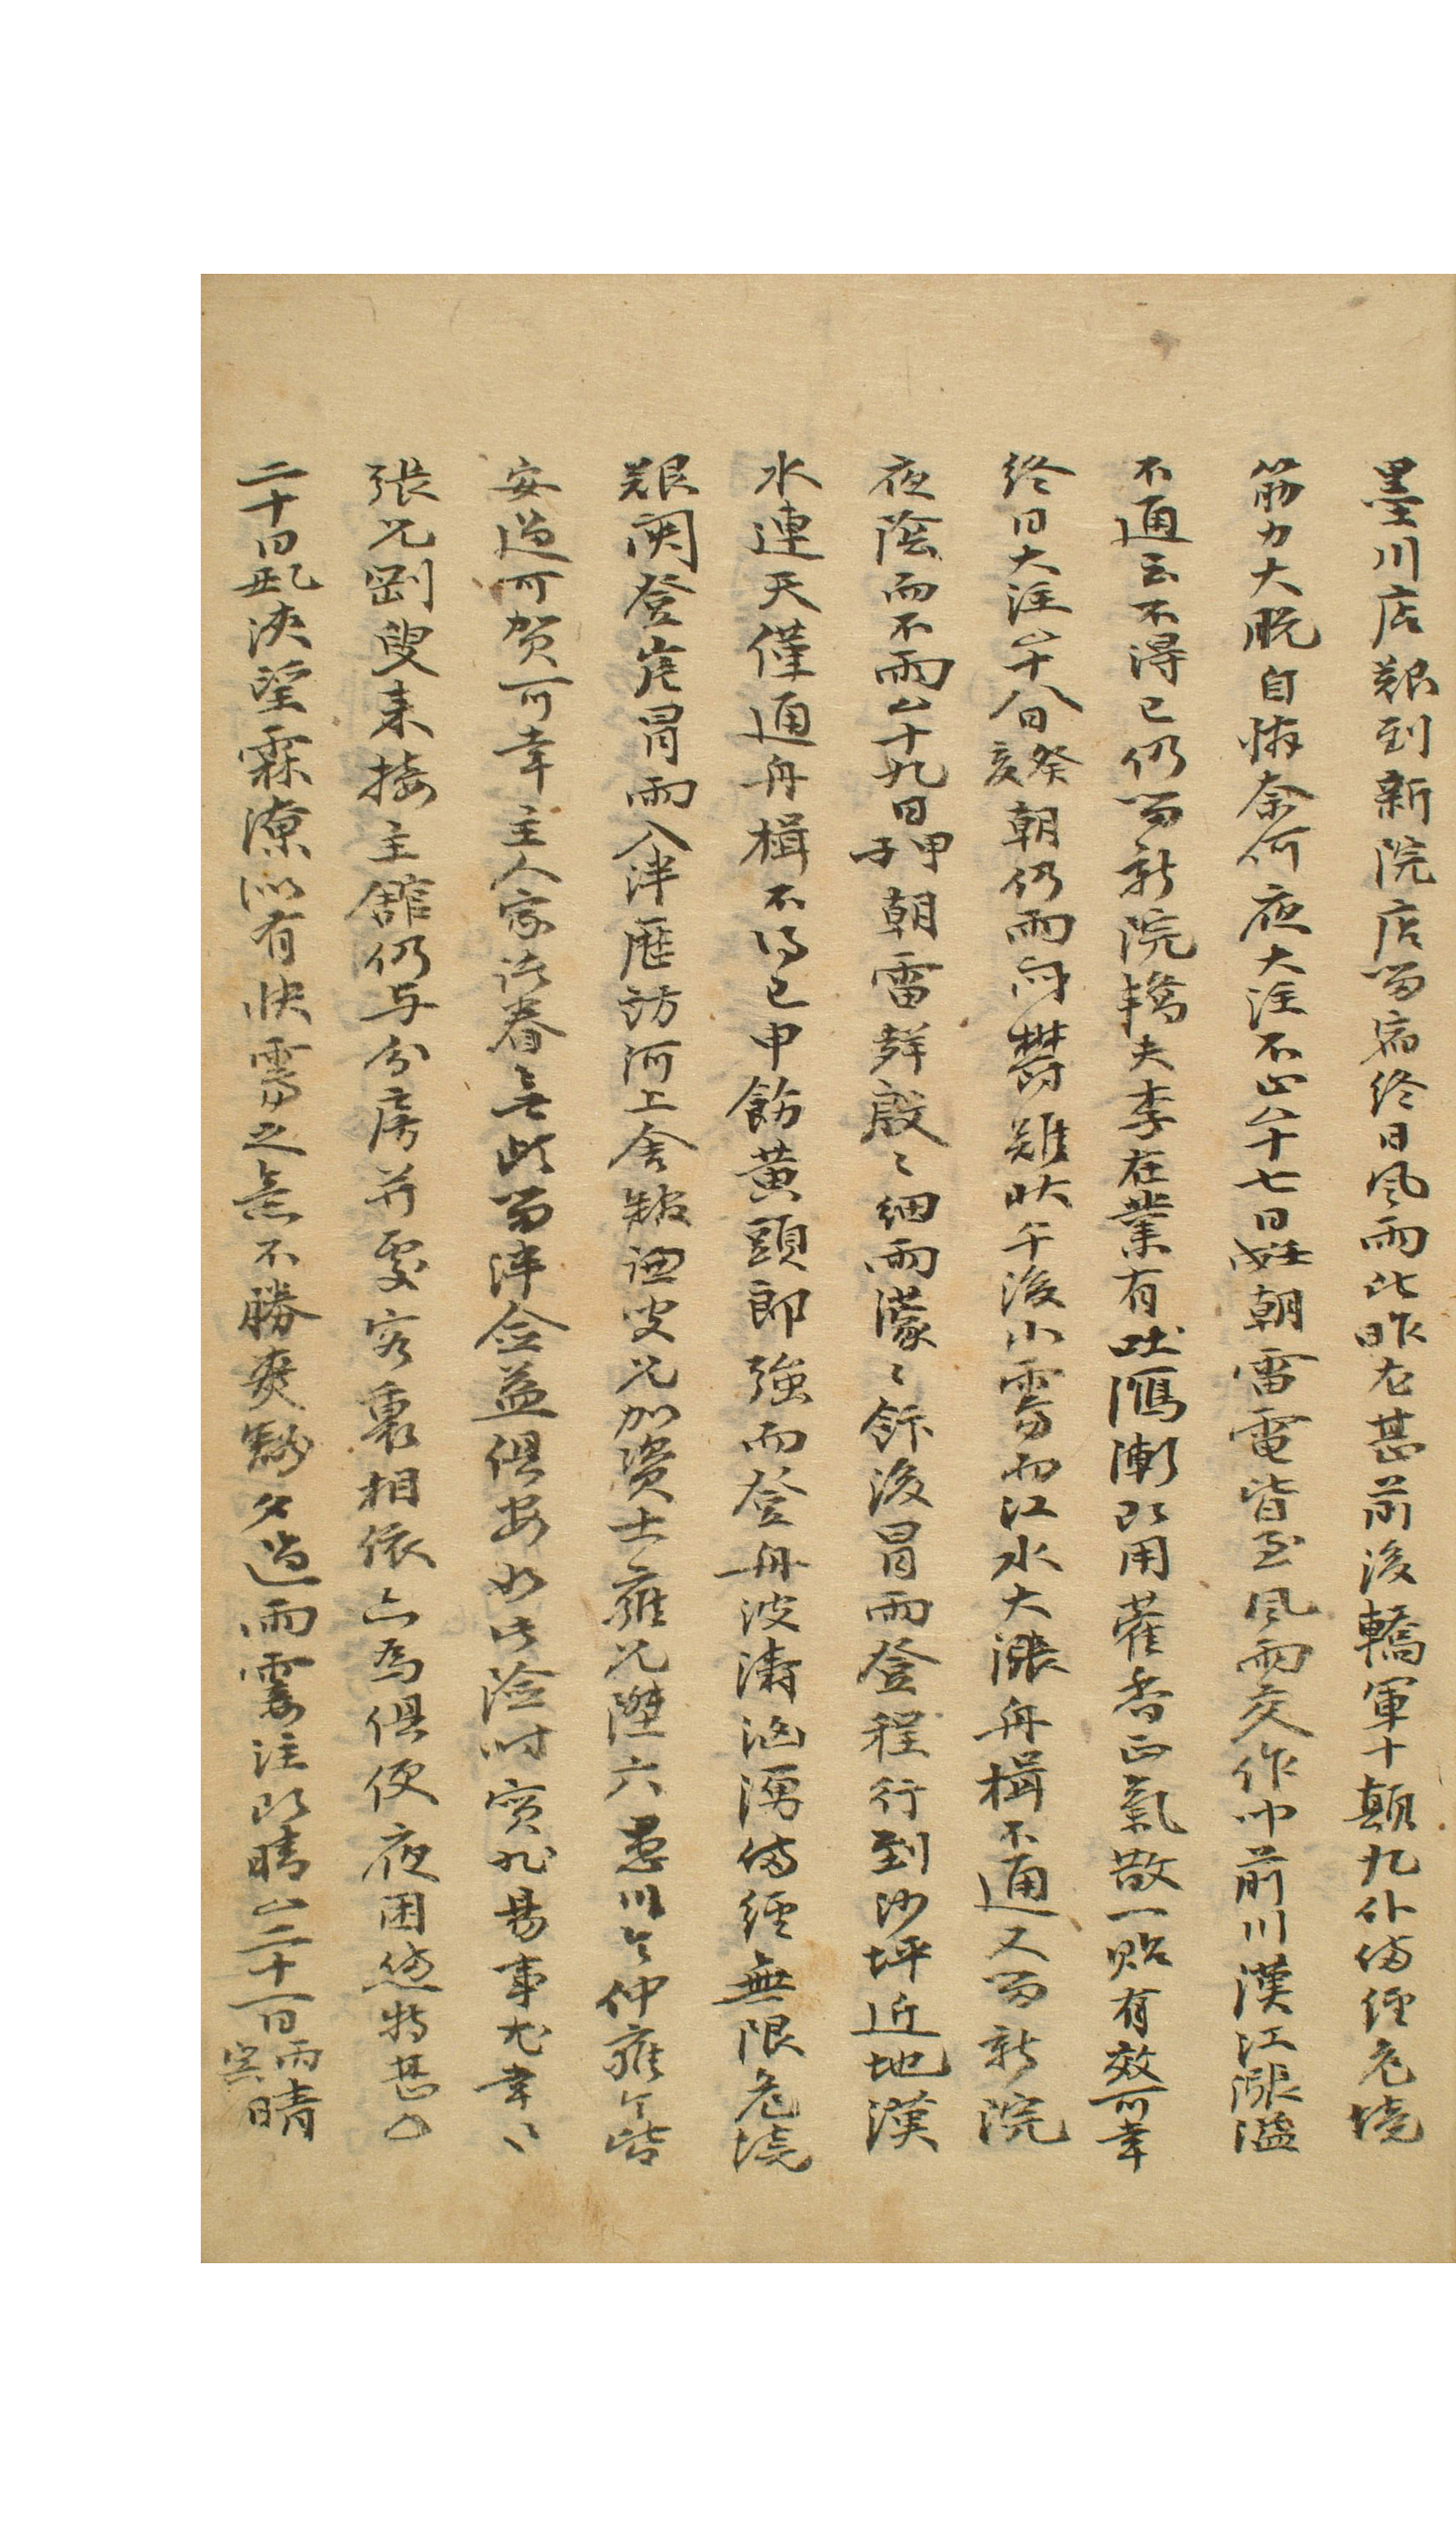 墨川店艱到新院店留宿終日風雨比昨尤甚前後轎軍十顚九仆備經危境
筋力大脫自悼奈何夜大注不止△十七日壬戌朝雷電皆至風雨交作而前川漢江漲溢
不通云不得已仍留新院轎夫李在業有吐瀉漸以用藿香正氣散一貼有效可幸
終日大注△十八日癸亥朝仍雨向鬱難狀午後小霽而江水大漲舟楫不通又留新院
夜陰而不雨△十九日甲子朝雷聲殷〻細雨濛〻飯後冒雨登程行到沙坪近地漢
水連天僅通舟楫不得已申飭黃頭郞強而登舟波濤洶湧備經無限危境
艱關登岸冒雨入泮歷訪河上舍 叟兄加資士雍兄陞六愚川令仲雍令皆
安過可賀可幸主人家諸眷無頉留泮僉益俱安如此險時實非易事尤幸〻
張兄剛叟來接主館仍与分房并處客裏相依亦爲俱便夜困憊特甚△
二十日乙丑浹望霖潦似有快霽之意不勝爽豁夕過雨霎注以晴△二十一日丙寅晴